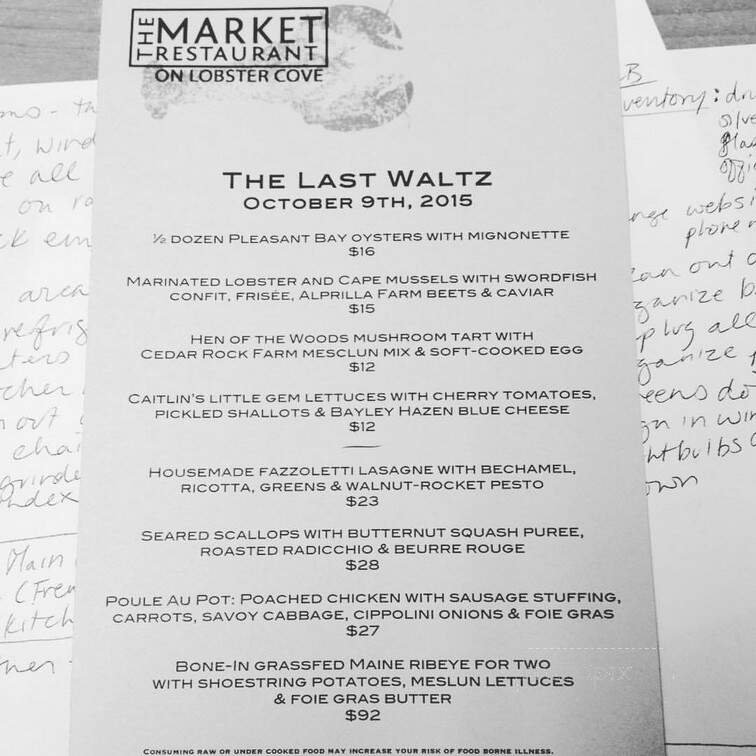 THE MARKET
RESTAURANT
ON LOBSTER COVE
THE LAST WALTZ
OCTOBER 9TH, 2015
½ DOZEN PLEASANT BAY OYSTERS WITH MIGNONETTE
$16
MARINATED LOBSTER AND CAPE MUSSELS WITH SWORDFISH
CONFIT, FRISÉE, ALPRILLA FARM BEETS & CAVIAR
$15
HEN OF THE WOODS MUSHROOM TART WITH
CEDAR ROCK FARM MESCLUN MIX & SOFT-COOKED EGG
$12
CAITLIN'S LITTLE GEM LETTUCES WITH CHERRY TOMATOES,
PICKLED SHALLOTS & BAYLEY HAZEN BLUE CHEESE
$12
HOUSEMADE FAZZOLETTI LASAGNE WITH BECHAMEL,
RICOTTA, GREENS & WALNUT-ROCKET PESTO
$23
SEARED SCALLOPS WITH BUTTERNUT SQUASH PUREE,
ROASTED RADICCHIO & BEURRE ROUGE
$28
POULE AU POT: POACHED CHICKEN WITH SAUSAGE STUFFING,
CARROTS, SAVOY CABBAGE, CIPPOLINI ONIONS & FOIE GRAS
$27
BONE-IN GRASSFED MAINE RIBEYE FOR TWO
WITH SHOESTRING POTATOES, MESLUN LETTUCES
& FOIE GRAS BUTTER
$92
CONSUMING RAW OR UNDER COOKED FOOD MAY INCREASE YOUR RISK OF FOOD BORNE ILLNESS.
e all
area
Main
kitch
B
ventory: dr
plone
ean out
ganize b
plug all
ganize
eens do
gn in win
htbulbs
own